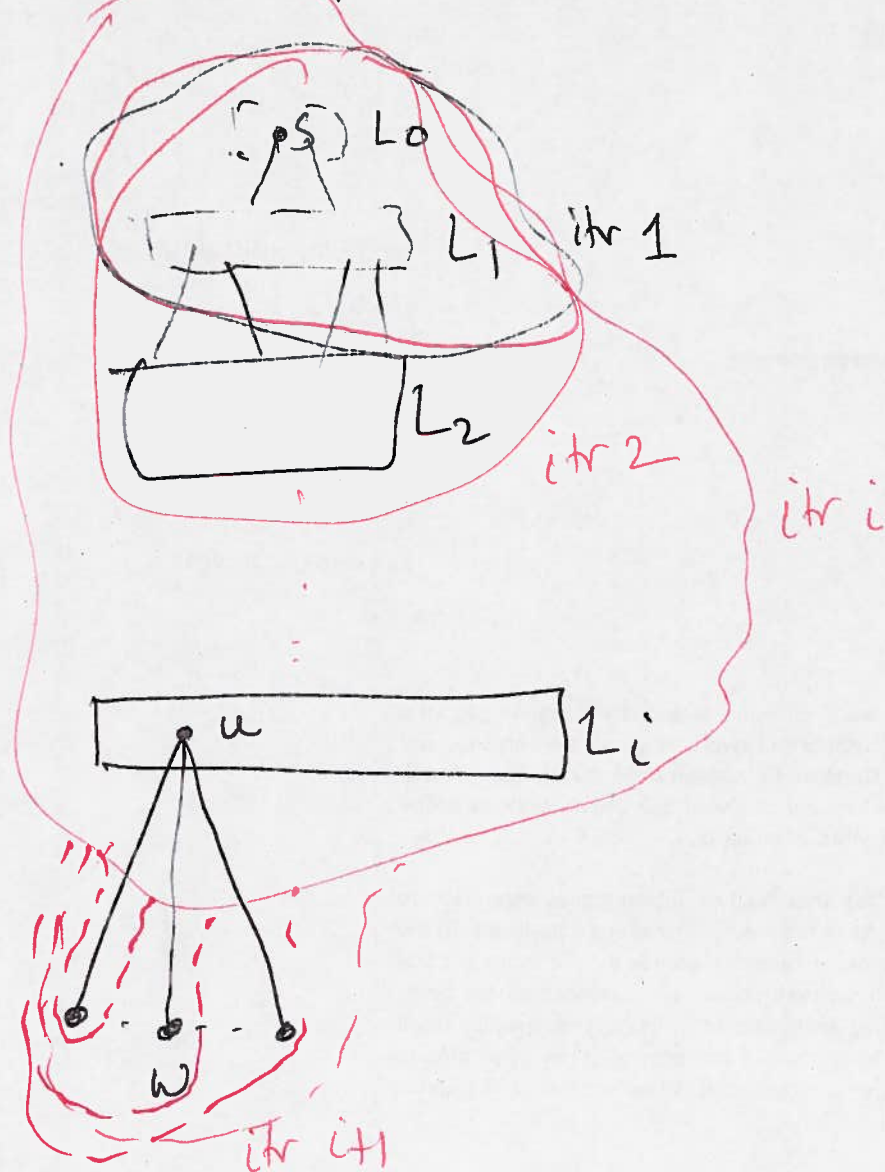 S L0
L1 itr 1
L2
itr 2
itr i
u Li
w
itr i+1